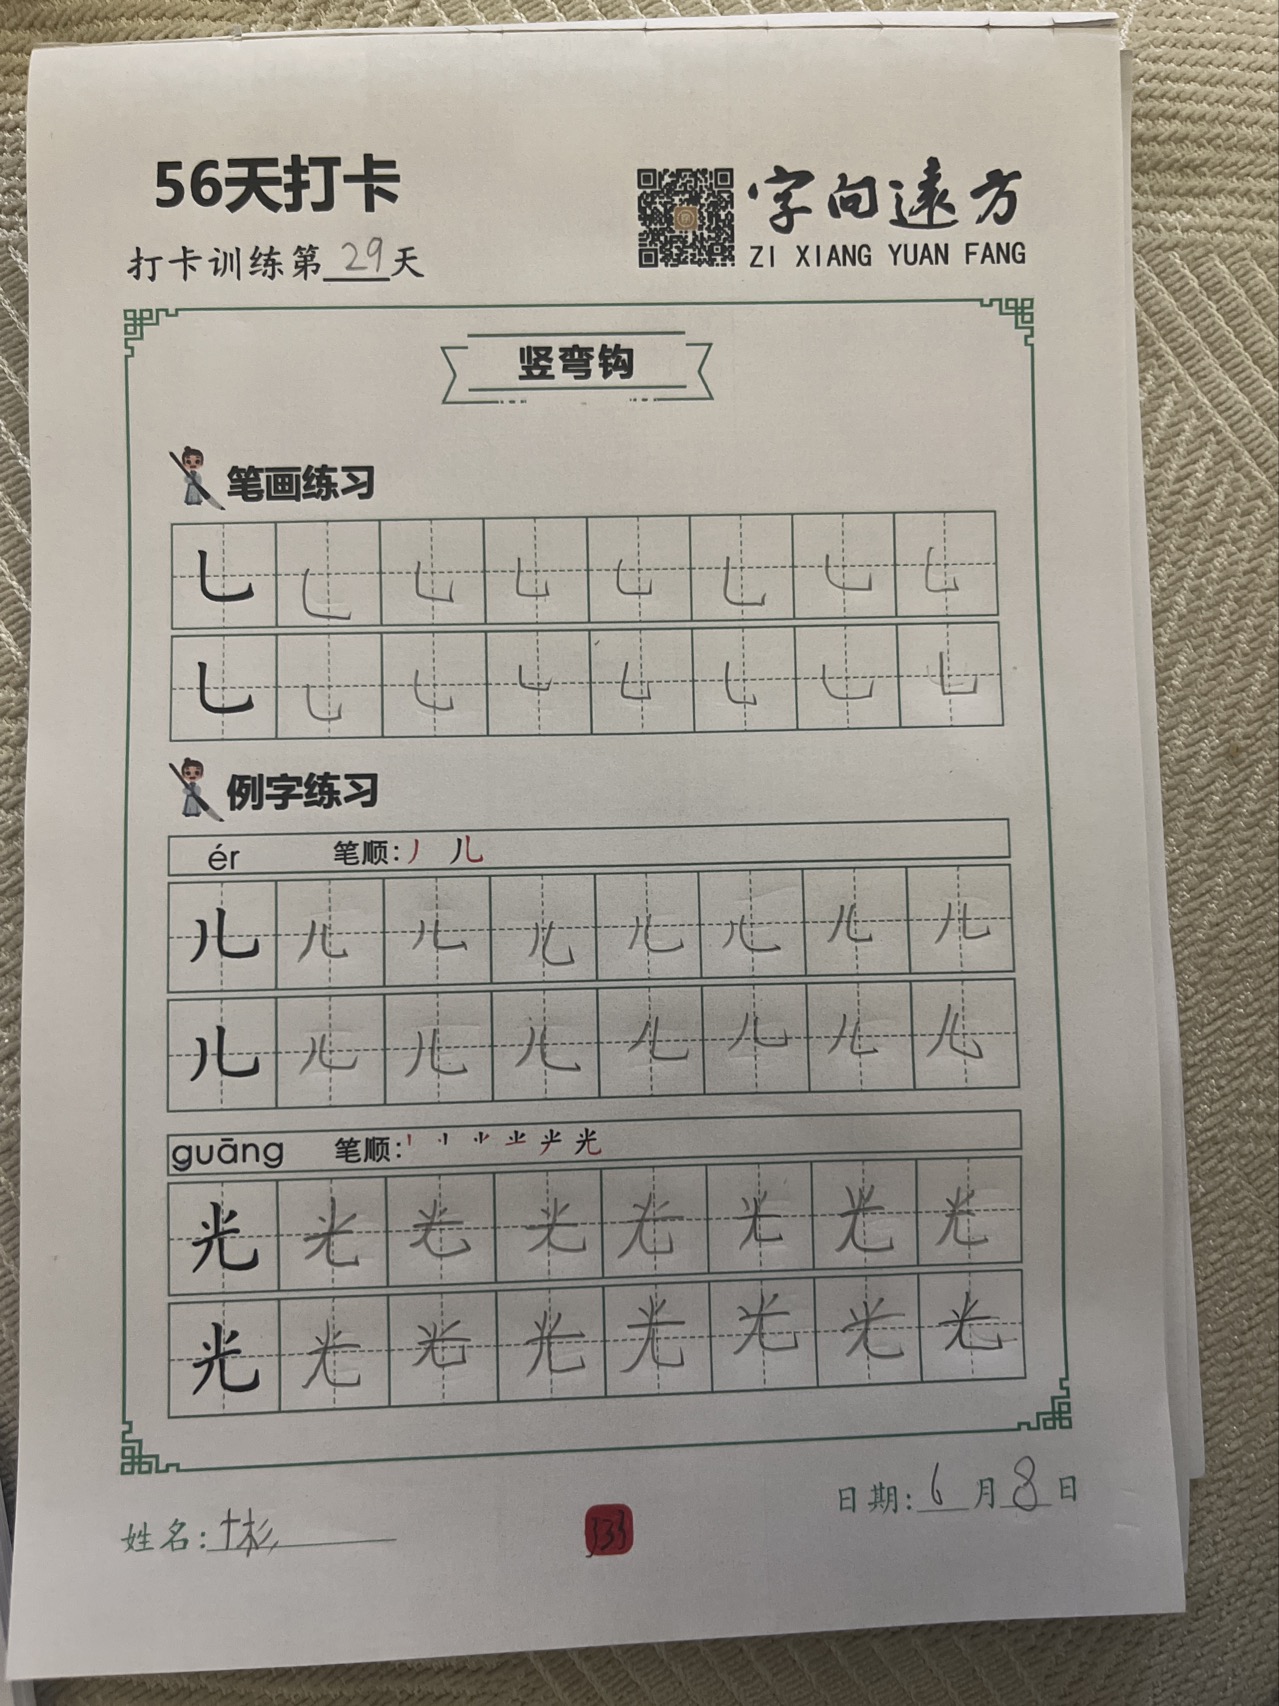 56天打卡
字向遠方
打卡训练第29天
ZI XIANG YUAN FANG
竖弯钩
笔画练习
乚 乚 乚 乚 乚 乚 乚 乚
乚 乚 乚 乚 乚 乚 乚 乚
例字练习
ér 笔顺: 丿 儿
儿 儿 儿 儿 儿 儿 儿 儿
儿 儿 儿 儿 儿 儿 儿 儿
guāng 笔顺: 光
光 光 光 光 光 光 光 光
光 光 光 光 光 光 光 光
日期: 6月8日
姓名: